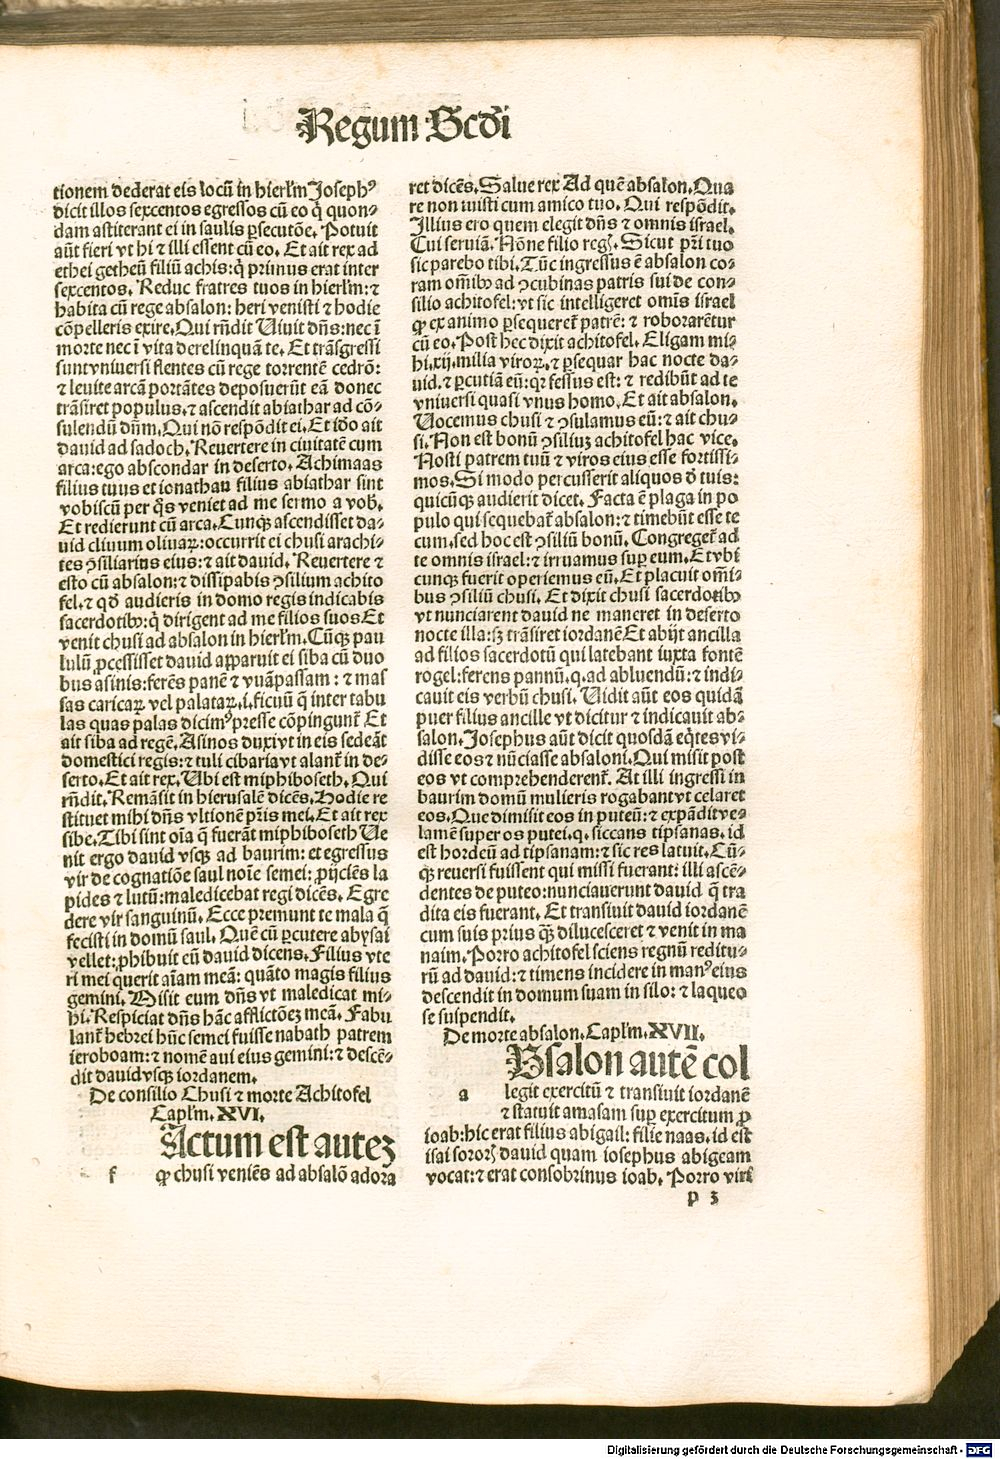 Regum Scd̄i
tionem dederat eis locū in hierl̄m Josephꝰ
dicit illos sexcentos egressos cū eo q̇ quon⸗
dam astiterant ei in saulis ꝑsecutōe. Potuit
aūt fieri vt hi ⁊ illi essent cū eo. Et ait rex ad
ethei getheū filiū achis: q̇ primus erat inter
sexcentos. Reduc fratres tuos in hierl̄m: ⁊
habita cū rege absalon: heri venisti ⁊ hodie
cōpelleris exire. Qui rn̄dit Uiuit dn̄s: nec ī
morte nec ī vita derelinquā te. Et trāsgressi
sunt vniuersi flentes cū rege torrentē cedrō:
⁊ leuite arcā portātes deposuerūt eā donec
trāsiret populus. ⁊ ascendit abiathar ad cō⸗
sulendū dn̄m. Qui nō respōdit ei. Et id̄o ait
dauid ad sadoch. Reuertere in ciuitatē cum
arca: ego abscondar in deserto. Achimaas
filius tuus et ionathau filius abiathar sint
vobiscū per q̄s veniet ad me sermo a vob̄.
Et redierunt cū arca. Cunqꝫ ascendisset da⸗
uid cliuum oliuaꝝ: occurrit ei chusi arachi⸗
tes ꝯsiliarius eius: ⁊ ait dauid. Reuertere ⁊
esto cū absalon: ⁊ dissipabis ꝯsilium achito
fel. ⁊ qd̄ audieris in domo regis indicabis
sacerdotibꝰ: q̇ dirigent ad me filios suos Et
venit chusi ad absalon in hierl̄m. Cūqꝫ pau
lulū ꝓcessisset dauid apparuit ei siba cū duo
bus asinis: ferēs panē ⁊ vuā passam : ⁊ mas
sas caricaꝝ vel palataꝝ .i. ficuū q̄ inter tabu
las quas palas dicimꝰ presse cōpingunt̄ Et
ait siba ad regē. Asinos duxi vt in eis sedeāt
domestici regis: ⁊ tuli cibaria vt alant̄ in de⸗
serto. Et ait rex. Ubi est miphiboseth. Qui
rn̄dit. Remāsit in hierusalē dicēs. Hodie re
stituet mihi dn̄s vltionē pr̄is mei. Et ait rex
sibe. Tibi sint oīa q̄ fuerāt miphiboseth Ue
nit ergo dauid vsqꝫ ad baurim: et egressus
vir de cognatiōe saul noīe semei: ꝓijciēs la
pides ⁊ lutū: maledicebat regi dicēs. Egre
dere vir sanguinū. Ecce premunt te mala q̄
fecisti in domū saul. Quē cū ꝑcutere abysai
vellet: ꝓhibuit eū dauid dicens. Filius vte
ri mei querit aīam meā: quāto magis filius
gemini. Misit eum dn̄s vt maledicat mi⸗
hi. Respiciat dn̄s hāc afflictōeꝫ meā. Fabu
lant̄ hebrei hūc semei fuisse nabath patrem
ieroboam: ⁊ nomē aui eius gemini: ⁊ descē⸗
dit dauid vsqꝫ iordanem.
De consilio Chusi ⁊ morte Achitofel
Capl̄m. XVI.
Actum est auteꝫ
f ꝙ chusi veniēs ad absalō adora
ret dicēs. Salue rex Ad quē absalon. Qua
re non iuisti cum amico tuo. Qui respōdit.
Illius ero quem elegit dn̄s ⁊ omnis israel.
Cui seruiā. Nōne filio reḡ. Sicut pr̄i tuo
sic parebo tibi. Tūc ingressus ē absalon co⸗
ram om̄ibꝰ ad ꝯcubinas patris sui de con⸗
silio achitofel: vt sic intelligeret omnis israel
ꝙ ex animo ꝑsequeret̄ patrē: ⁊ roborarētur
cū eo. Post hec dixit achitofel. Eligam mi⸗
hi .xij. milia viroꝝ. ⁊ ꝑsequar hac nocte da⸗
uid. ⁊ ꝑcutiā eū: qꝛ fessus est: ⁊ redibūt ad te
vniuersi quasi vnus homo. Et ait absalon.
Uocemus chusi ⁊ ꝯsulamus eū: ⁊ ait chu⸗
si. Non est bonū ꝯsiliuꝫ achitofel hac vice.
Nosti patrem tuū ⁊ viros eius esse fortissi⸗
mos. Si modo percusserit aliquos d̄ tuis:
quicūqꝫ audierit dicet. Facta ē plaga in po
pulo qui sequebat̄ absalon: ⁊ timebūt esse te
cum. sed hoc est ꝯsiliū bonū. Congreget̄ ad
te omnis israel: ⁊ irruamus suꝑ eum. Et vbi
cunqꝫ fuerit operiemus eū. Et placuit om̄i⸗
bus ꝯsiliū chusi. Et dixit chusi sacerdotibꝰ
vt nunciarent dauid ne maneret in deserto
nocte illa: sꝫ trāsiret iordanē Et abijt ancilla
ad filios sacerdotū qui latebant iuxta fontē
rogel: ferens pannū .q. ad abluendū: ⁊ indi⸗
cauit eis verbū chusi. Uidit aūt eos quidā
puer filius ancille vt dicitur ⁊ indicauit ab⸗
salon. Josephus aūt dicit quosdā eq̇tes vi⸗
disse eos ⁊ nūciasse absaloni. Qui misit post
eos vt comprehenderent̄. At illi ingressi in
baurim domū mulieris rogabant vt celaret
eos. Que dimisit eos in puteū: ⁊ expādit ve⸗
lamē super os putei .q. siccans tipsanas. id
est hordeū ad tipsanam: ⁊ sic res latuit. Cū⸗
qꝫ reuersi fuissent qui missi fuerant: illi ascē⸗
dentes de puteo: nunciauerunt dauid q̄ tra
dita eis fuerant. Et transiuit dauid iordanē
cum suis prius qꝫ̄ dilucesceret ⁊ venit in ma
naim. Porro achitofel sciens regnū reditu⸗
rū ad dauid: ⁊ timens incidere in manꝰ eius
descendit in domum suam in silo: ⁊ laqueo
se suspendit.
De morte absalon. Capl̄m. XVII.
Bsalon autē col
a legit exercitū ⁊ transiuit iordanē
⁊ statuit amasam suꝑ exercitum ꝓ
ioab: hic erat filius abigail: filie naas. id est
isai soror̄ dauid quam iosephus abigeam
vocat: ⁊ erat consobrinus ioab. Porro viri
p 3
Digitalisierung gefördert durch die Deutsche Forschungsgemeinschaft - DFG